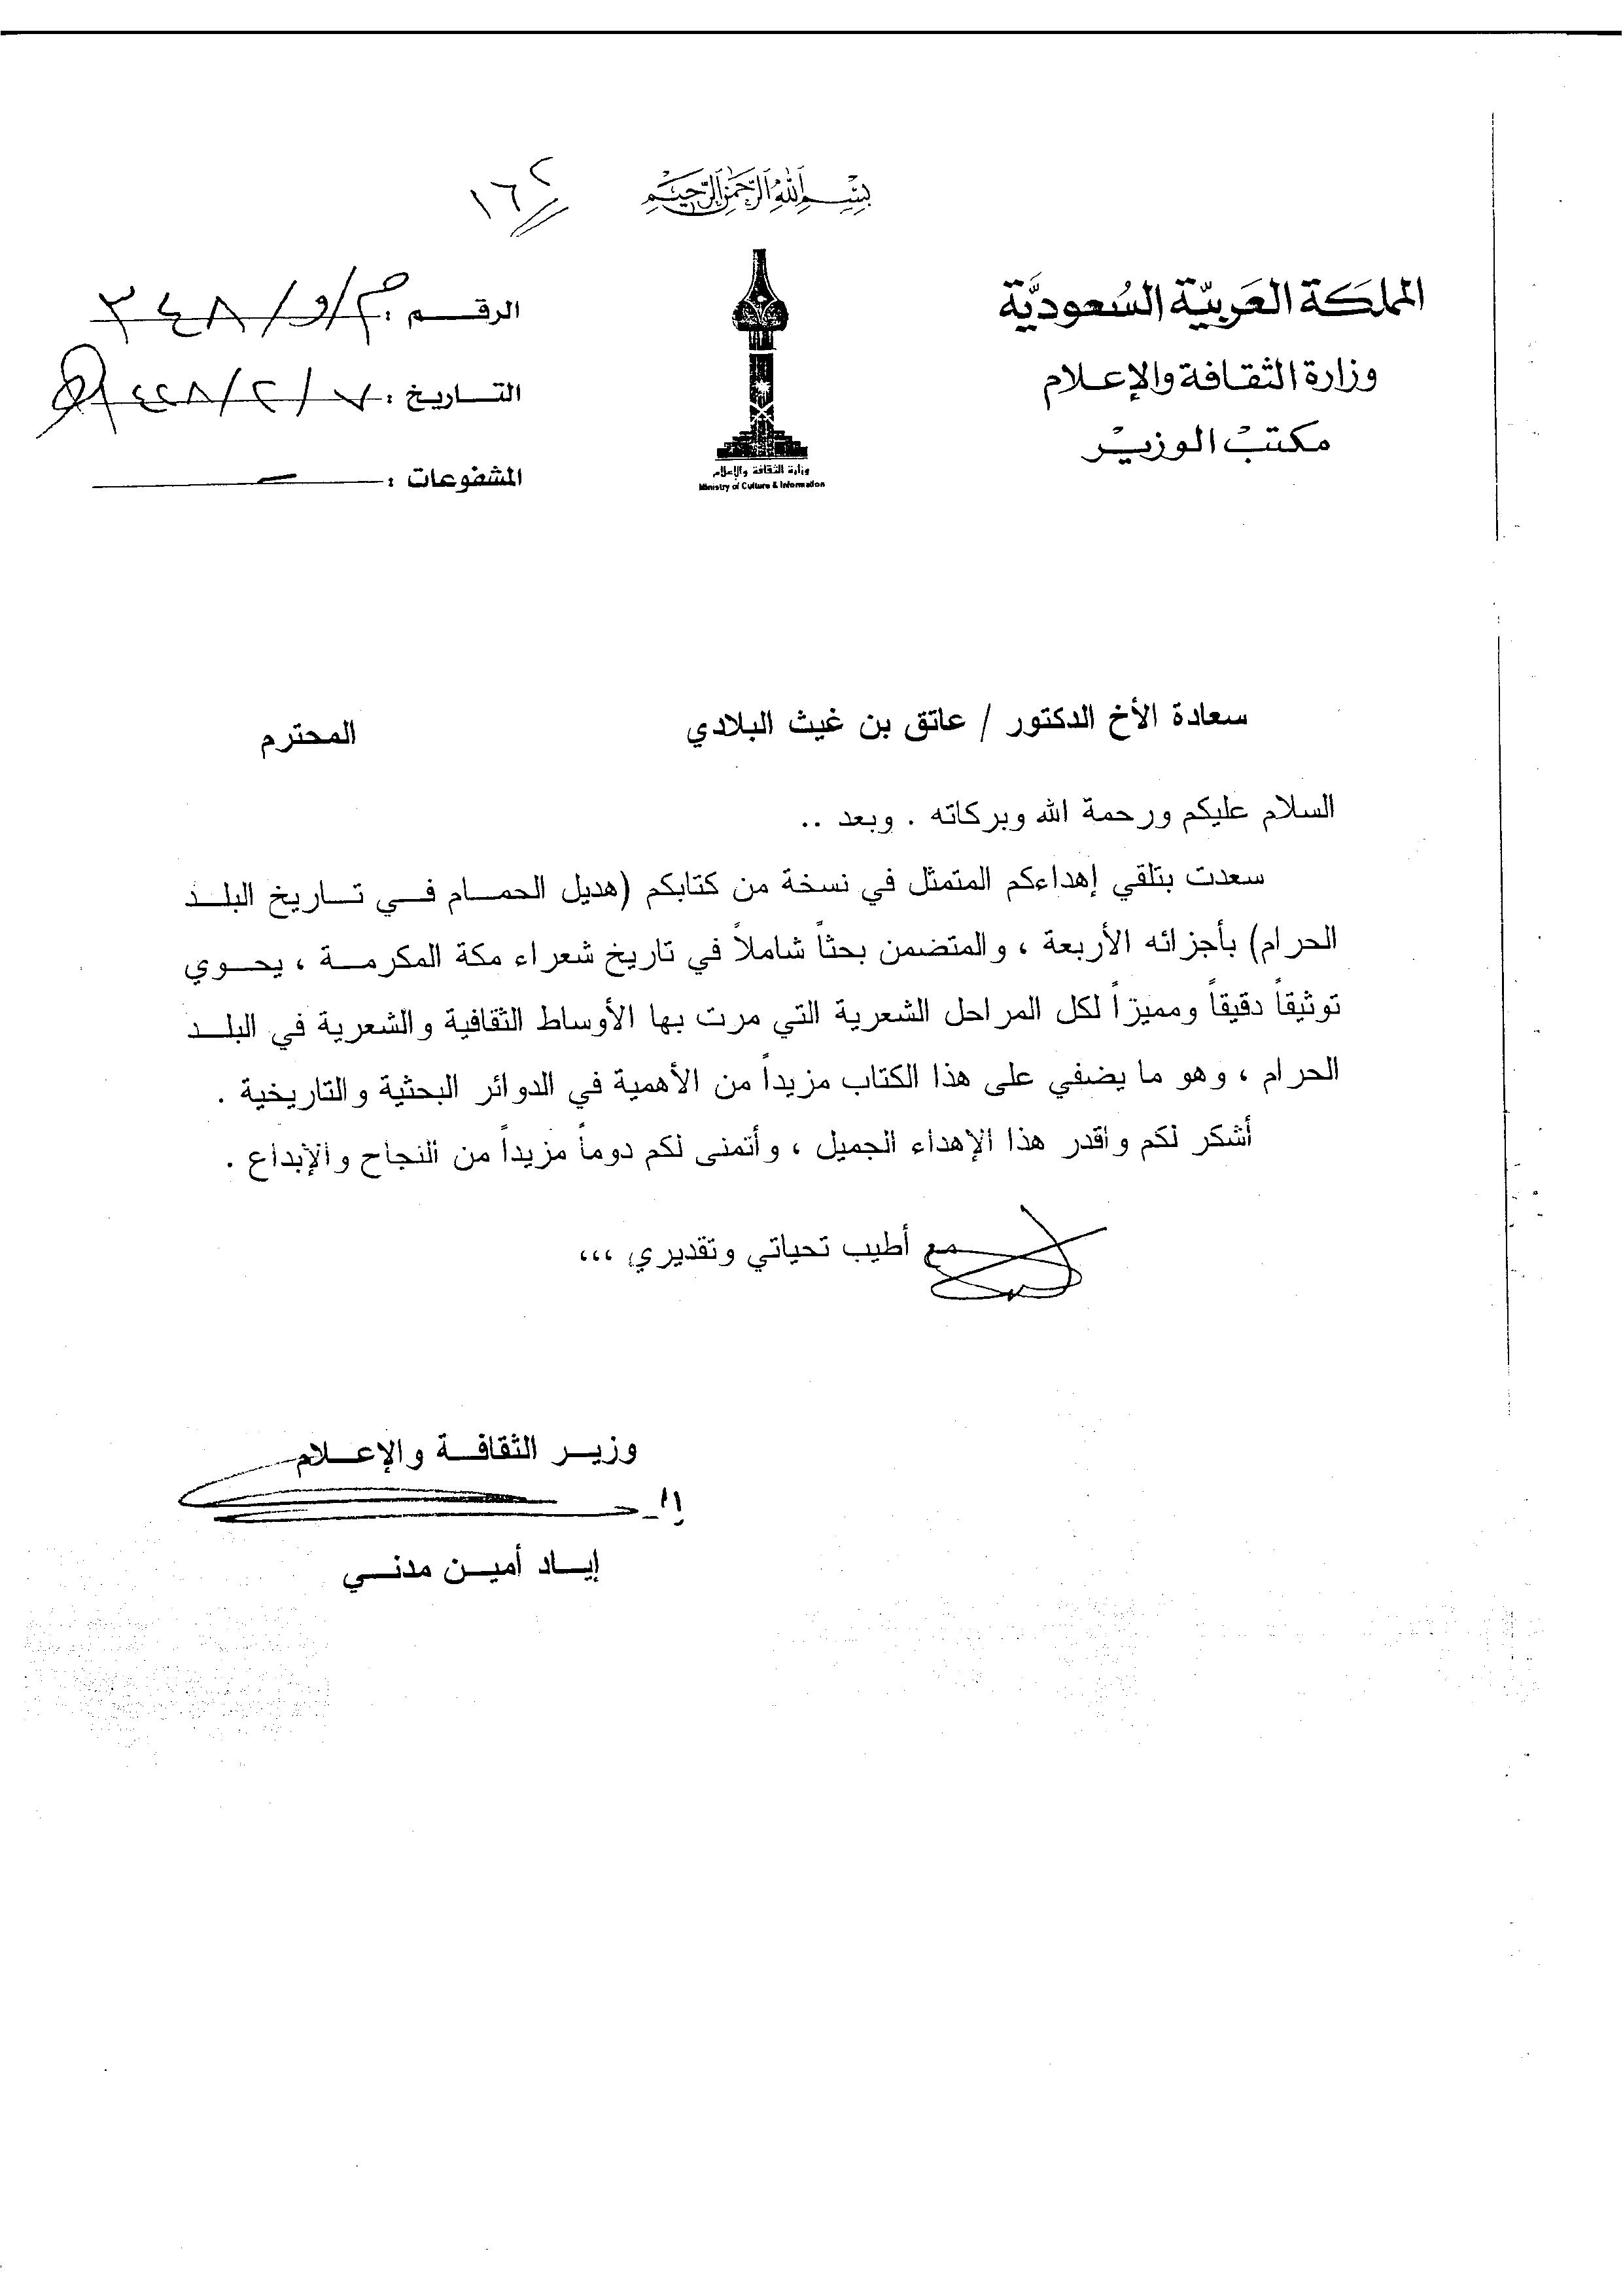 بسم الله الرحمن الرحيم
١٦٢
المملكة العربية السعودية
وزارة الثقافة والإعلام
مكتب الوزير
وزارة الثقافة والإعلام
Ministry of Culture & Information
الرقم : م/و/٣٤٨
التاريخ : ٧/٢/١٤٢٨هـ
المشفوعات :
سعادة الأخ الدكتور / عاتق بن غيث البلادي المحترم
السلام عليكم ورحمة الله وبركاته . وبعد ..
سعدت بتلقي إهداءكم المتمثل في نسخة من كتابكم (هديل الحمام في تاريخ البلد
الحرام) بأجزائه الأربعة ، والمتضمن بحثاً شاملاً في تاريخ شعراء مكة المكرمة ، يحوي
توثيقاً دقيقاً ومميزاً لكل المراحل الشعرية التي مرت بها الأوساط الثقافية والشعرية في البلد
الحرام ، وهو ما يضفي على هذا الكتاب مزيداً من الأهمية في الدوائر البحثية والتاريخية .
أشكر لكم وأقدر هذا الإهداء الجميل ، وأتمنى لكم دوماً مزيداً من النجاح والإبداع .
مع أطيب تحياتي وتقديري ،،،
وزير الثقافة والإعلام
إياد أمين مدني